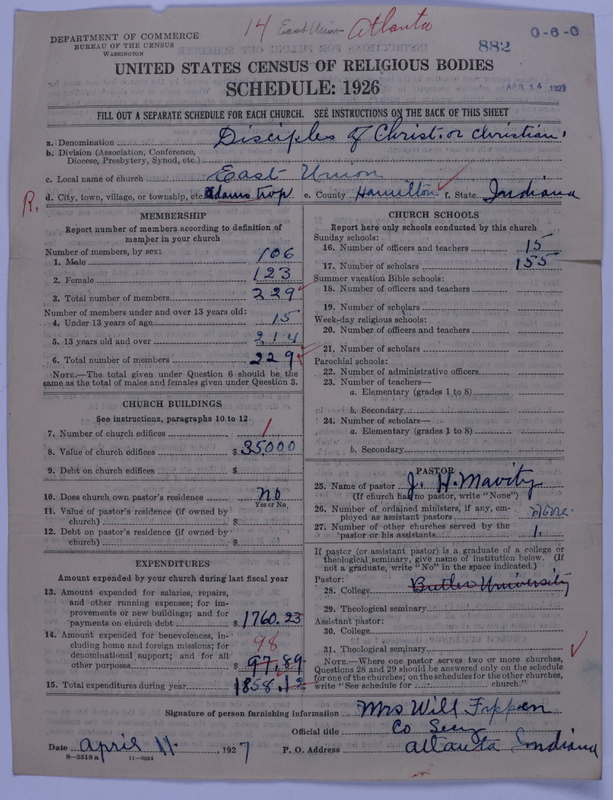 14 East Union Atlanta
DEPARTMENT OF COMMERCE
BUREAU OF THE CENSUS
WASHINGTON
882
0-6-0
APR 14 1927
UNITED STATES CENSUS OF RELIGIOUS BODIES
SCHEDULE: 1926
FILL OUT A SEPARATE SCHEDULE FOR EACH CHURCH. SEE INSTRUCTIONS ON THE BACK OF THIS SHEET
a. Denomination Disciples of Christ or Christian
b. Division (Association, Conference,
Diocese, Presbytery, Synod, etc.)
c. Local name of church East Union
R. d. City, town, village, or township, etc. Adams e. County Hamilton f. State Indiana
MEMBERSHIP
Report number of members according to definition of
member in your church
Number of members, by sex:
1. Male 106
2. Female 123
3. Total number of members 229
Number of members under and over 13 years old:
4. Under 13 years of age 15
5. 13 years old and over 214
6. Total number of members 229
NOTE.—The total given under Question 6 should be the
same as the total of males and females given under Question 3.
CHURCH BUILDINGS
See instructions, paragraphs 10 to 12
7. Number of church edifices 1
8. Value of church edifices $ 35,000
9. Debt on church edifices $
10. Does church own pastor's residence no
Yes or No
11. Value of pastor's residence (if owned by
church) $
12. Debt on pastor's residence (if owned by
church) $
EXPENDITURES
Amount expended by your church during last fiscal year
13. Amount expended for salaries, repairs,
and other running expenses; for im-
provements or new buildings; and for
payments on church debt $ 1760.23
14. Amount expended for benevolences, in-
cluding home and foreign missions; for
denominational support; and for all
other purposes $ 98 97.89
15. Total expenditures during year 1858.12
CHURCH SCHOOLS
Report here only schools conducted by this church
Sunday schools:
16. Number of officers and teachers 15
17. Number of scholars 155
Summer vacation Bible schools:
18. Number of officers and teachers
19. Number of scholars
Week-day religious schools:
20. Number of officers and teachers
21. Number of scholars
Parochial schools:
22. Number of administrative officers
23. Number of teachers—
a. Elementary (grades 1 to 8)
b. Secondary
24. Number of scholars—
a. Elementary (grades 1 to 8)
b. Secondary
PASTOR
25. Name of pastor J. H. Mavity
(If church has no pastor, write "None")
26. Number of ordained ministers, if any, em-
ployed as assistant pastors none
27. Number of other churches served by the
pastor or his assistants 1.
If pastor (or assistant pastor) is a graduate of a college or
theological seminary, give name of institution below. (If
not a graduate, write "No" in the space indicated.)
Pastor:
28. College Butler University
29. Theological seminary
Assistant pastor:
30. College
31. Theological seminary
NOTE.—Where one pastor serves two or more churches,
Questions 28 and 29 should be answered only on the schedule
for one of the churches; on the schedules for the other churches,
write "See schedule for church."
Signature of person furnishing information Mrs Will
Official title Co Secy
Date April 11, 1927 P. O. Address Atlanta Indiana
8-5518a 11-9054